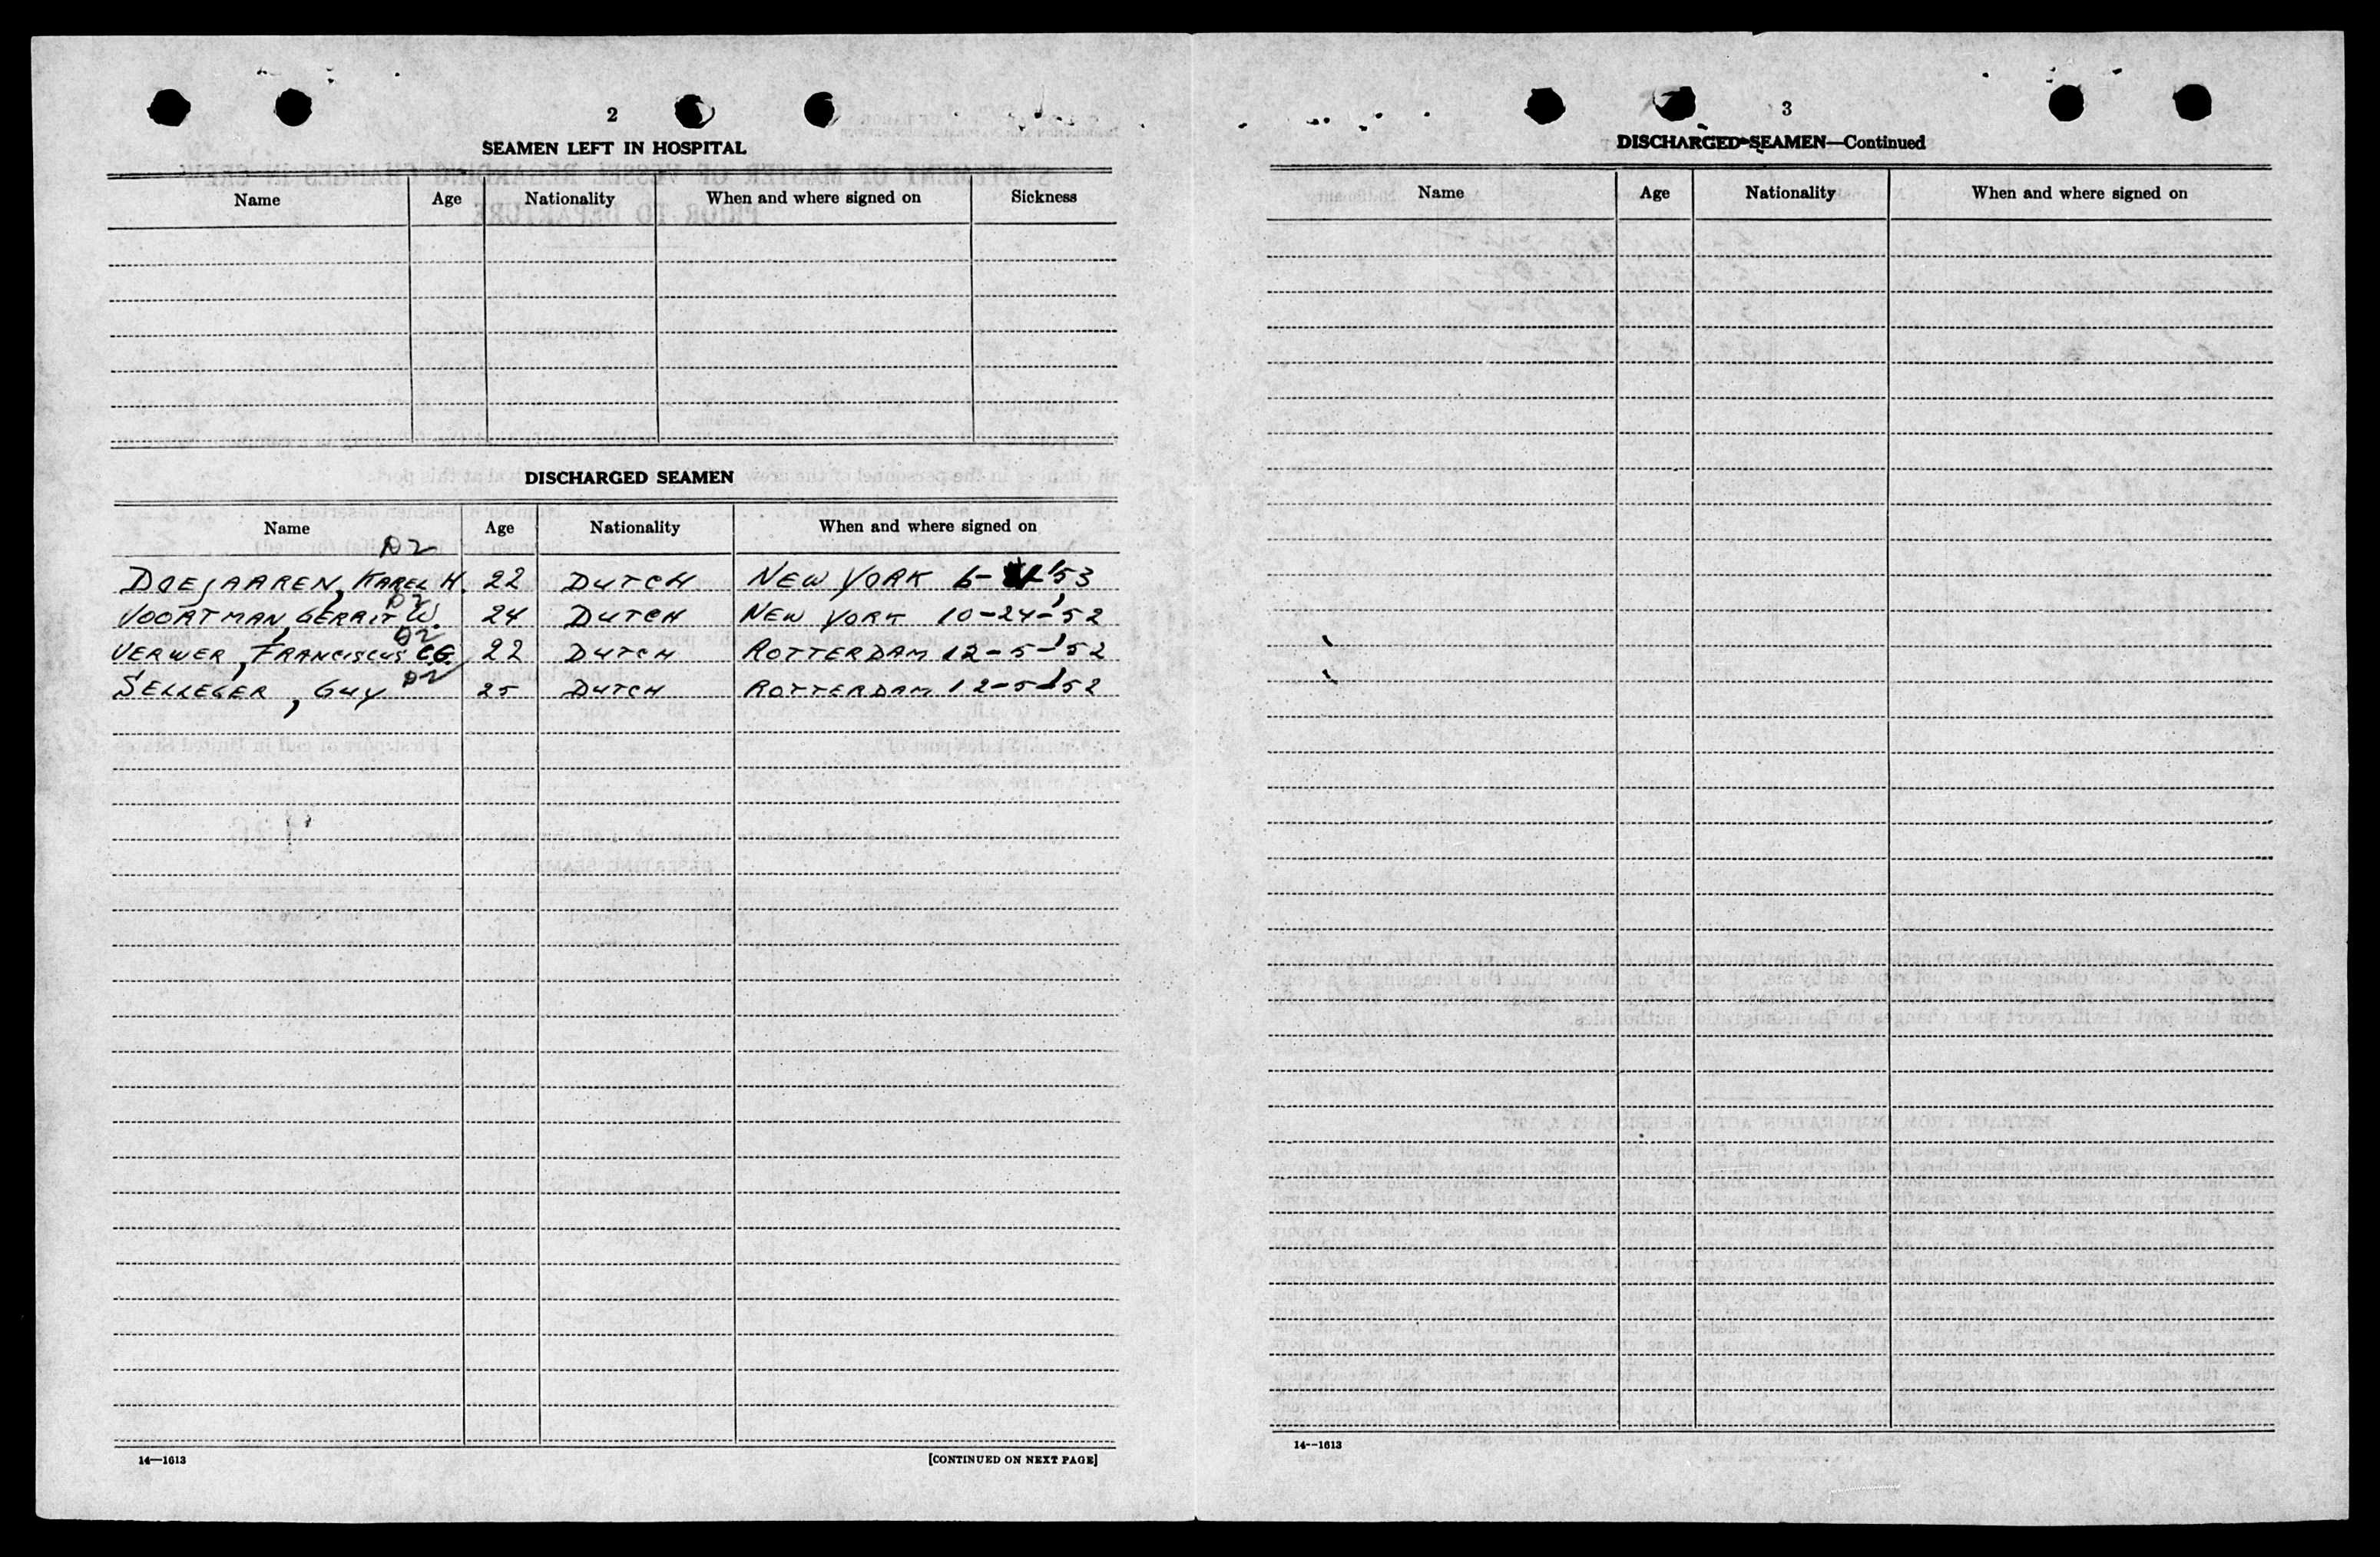 2
SEAMEN LEFT IN HOSPITAL
Name Age Nationality When and where signed on Sickness
DISCHARGED SEAMEN
Name Age Nationality When and where signed on
D2
DOEJAAREN, KAREL H. 22 DUTCH NEW YORK 6- '53
D2
VOORTMAN, GERRIT W. 24 DUTCH NEW YORK 10-24-'52
D2
VERWER, FRANCISCUS C.G. 22 DUTCH ROTTERDAM 12-5-'52
D2
SELLEGER, GUY 25 DUTCH ROTTERDAM 12-5-'52
14—1613 [CONTINUED ON NEXT PAGE]
3
DISCHARGED SEAMEN—Continued
Name Age Nationality When and where signed on
14—1613